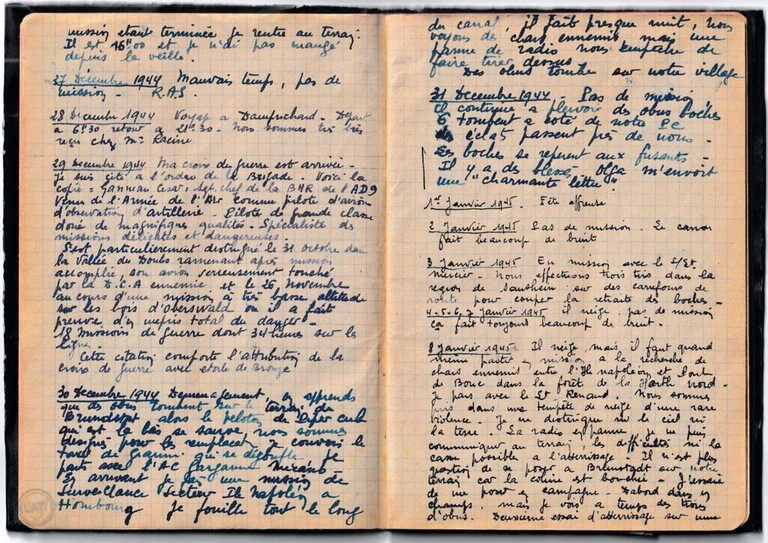 mission étant terminée je rentre au terrain.
Il est 16h00 et je n'ai pas mangé
depuis la veille.
27 Décembre 1944 Mauvais temps, pas de
mission - R.A.S
28 Décembre 1944 Voyage a Damprichard - Départ
a 6h30 retour a 21h30 - Nous sommes très bien
reçus chez Mr Racine
29 Décembre 1944 Ma croix de guerre est arrivée -
Je suis cité a l'ordre de la Brigade. Voici la
copie = Cesar, Sgt. chef de la de l'AD9
Venu de l'Armée de l'Air comme pilote d'avion
d'observation d'artillerie - Pilote de grande classe
doué de magnifiques qualités - Spécialiste des
missions délicates et dangereuses -
S'est particulièrement distingué le 31 Octobre dans
la Vallée du Doubs ramenant après mission
accomplie, son avion sérieusement touché
par la D.C.A ennemie et le 26 Novembre
au cours d'une mission à très basse altitude
sur les bois d'Oberswald où il a fait
preuve d'un mépris total du danger -
18 missions de guerre dont 34 heures sur les
lignes -
Cette citation comporte l'attribution de la
croix de guerre avec étoile de bronze
30 Décembre 1944 Demenagement, on apprend
que des obus tombent sur le terrain de
Brunstatt alors le peloton de
qui est là bas se sauve, nous sommes
désignés pour les remplacer, je couvre le
taxi de Gianni qui se dégonfle. Je
pars avec l'AC Mécano -
En arrivant je fais une mission de
Surveillance Secteur Ile Napoléon a
Hombourg je fouille tout le long
du canal, il fait presque nuit, nous
voyons des chars ennemis mais une
panne de radio nous empêche de
faire tirer dessus
Des obus tombe sur notre village
31 Decembre 1944 - Pas de mission
Il continue a pleuvoir des obus boches
6 tombent a coté de notre PC
des éclats passent près de nous -
Les boches se repèrent aux fusants -
Il y a des blessés, Olga m'envoit
une "charmante lettre"
1er Janvier 1945. Fête affreuse
2 Janvier 1945 Pas de mission. Le canon
fait beaucoup de bruit
3 Janvier 1945 En mission avec le S/Lt.
Mercier - Nous effectuons trois tirs dans la
region de Bantzheim sur des carrefours de
route pour couper la retraite des boches -
4-5-6, 7 Janvier 1945 il neige, pas de mission
ça fait toujours beaucoup de bruit.
8 Janvier 1945 Il neige mais il faut quand
meme partir en mission a la recherche de
chars ennemis entre l'Ile Napoléon et Pont
de Bouc dans la forêt de la Harth Nord -
Je pars avec le Lt Renaud. Nous sommes
pris dans une tempête de neige d'une rare
violence - Je ne distingue ni le ciel ni
la terre - La radio en panne je ne puis
communiquer au terrain les difficultés ni la
casse possible a l'atterrissage - Il n'est plus
question de se poser a Brunstadt sur notre
terrain car la colline est bouchée - J'essaie
de me poser en campagne - D'abord dans un
champs, mais je vois a temps des trous
d'obus. Deuxième essai d'atterrissage sur une